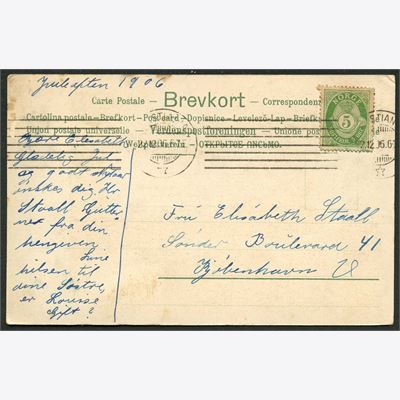 Juleaften 1906
Carte Postale - Brevkort - Correspondenz
Cartolina postale - Brefkort - Postcard - Dopisnice - Levelező-Lap - Briefk
Union postale universelle - Verdenspostforeningen - Unione po
Weltpostverein - ОТКРЫТОЕ ПИСЬМО.
NORGE
5
Kære Elisabeth
Glædelig Jul
og godt nytaar
ønskes dig. Hr
Staall
fra din
hengiven
Sine
hilsen til
dine Søstre,
er Lousse
Gift?
Frü Elisabeth Staall
Sønder Boulevard 41
Kjøbenhavn V